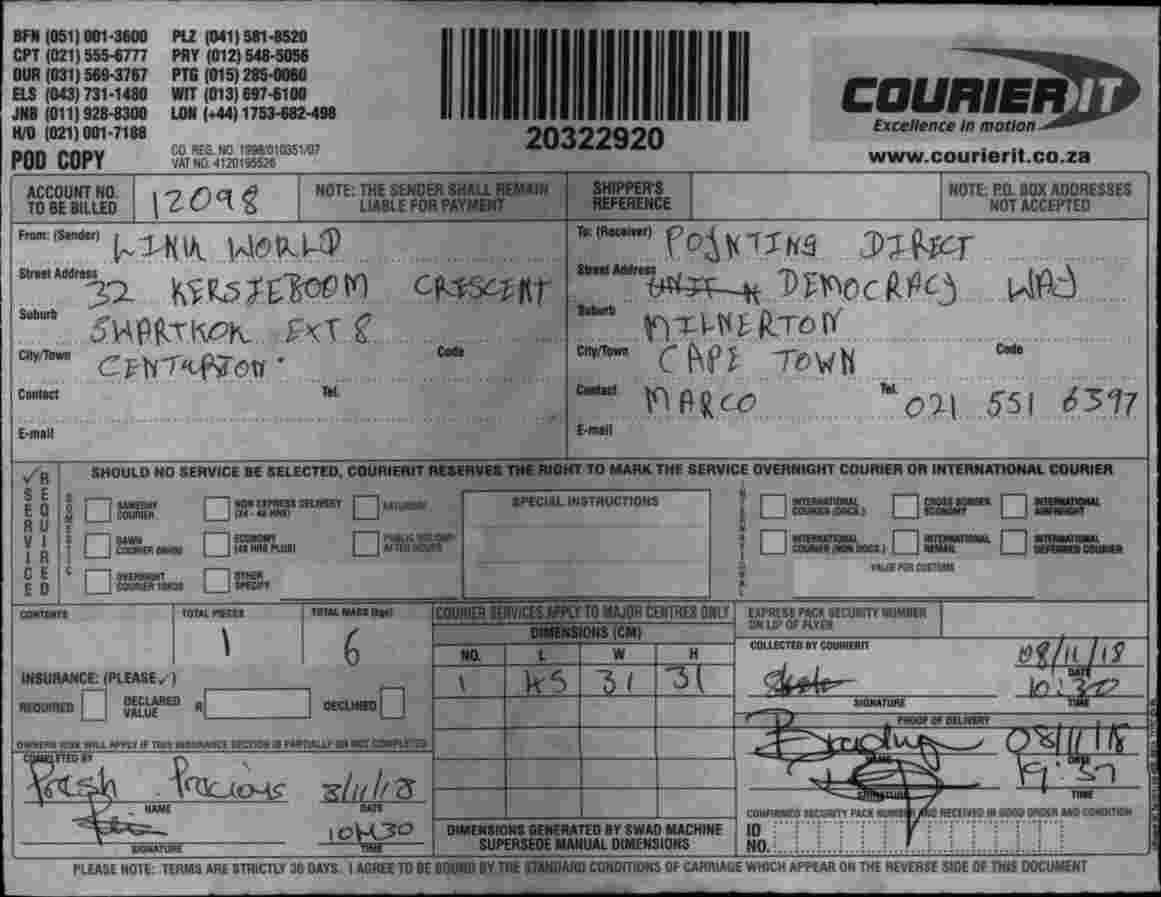 BFN (051) 001-3600 PLZ (041) 581-8520
CPT (021) 555-6777 PRY (012) 548-5056
DUR (031) 569-3767 PTG (015) 285-0060
ELS (043) 731-1480 WIT (013) 697-6100
JNB (011) 928-8300 LON (+44) 1753-682-498
H/O (021) 001-7188
POD COPY
CO. REG. NO. 1998/010351/07
VAT NO. 4120195526
20322920
COURIER IT
Excellence in motion
www.courierit.co.za
ACCOUNT NO. TO BE BILLED 12098
NOTE: THE SENDER SHALL REMAIN LIABLE FOR PAYMENT
SHIPPER'S REFERENCE
NOTE: P.O. BOX ADDRESSES NOT ACCEPTED
From: (Sender) WORLD
Street Address 32 CRESCENT
Suburb EXT 8
City/Town CENTURION Code
Contact Tel.
E-mail
To: (Receiver) POYNTING DIRECT
Street Address DEMOCRACY WAY
Suburb MILNERTON
City/Town CAPE TOWN Code
Contact MARCO Tel. 021 551 6397
E-mail
SERVICE REQUIRED
SHOULD NO SERVICE BE SELECTED, COURIERIT RESERVES THE RIGHT TO MARK THE SERVICE OVERNIGHT COURIER OR INTERNATIONAL COURIER
DOMESTIC
SAMEDAY COURIER
NON EXPRESS DELIVERY (24 - 48 HRS)
SATURDAY
DAWN COURIER
ECONOMY (48 HRS PLUS)
PUBLIC HOLIDAY AFTER HOURS
OVERNIGHT COURIER
OTHER SPECIFY
SPECIAL INSTRUCTIONS
INTERNATIONAL
INTERNATIONAL COURIER (DOCS.)
CROSS BORDER ECONOMY
INTERNATIONAL AIRFREIGHT
INTERNATIONAL COURIER (NON DOCS.)
INTERNATIONAL REMAIL
INTERNATIONAL DEFERRED COURIER
VALUE FOR CUSTOMS
CONTENTS
TOTAL PIECES
1
TOTAL MASS (kgs)
6
INSURANCE: (PLEASE ✓)
REQUIRED DECLARED VALUE R DECLINED
OWNERS RISK WILL APPLY IF THIS INSURANCE SECTION IS PARTIALLY OR NOT COMPLETED
COMPLETED BY
Precious
NAME
8/11/18
DATE
SIGNATURE
10H30
TIME
COURIER SERVICES APPLY TO MAJOR CENTRES ONLY
DIMENSIONS (CM)
NO. L W H
1 45 31 31
DIMENSIONS GENERATED BY SWAD MACHINE SUPERSEDE MANUAL DIMENSIONS
EXPRESS PACK SECURITY NUMBER ON LIP OF FLYER
COLLECTED BY COURIERIT
08/11/18
DATE
10:30
SIGNATURE TIME
PROOF OF DELIVERY
08/11/18
NAME DATE
SIGNATURE TIME
CONFIRMED SECURITY PACK NUMBER AND RECEIVED IN GOOD ORDER AND CONDITION
ID NO.
PLEASE NOTE: TERMS ARE STRICTLY 30 DAYS. I AGREE TO BE BOUND BY THE STANDARD CONDITIONS OF CARRIAGE WHICH APPEAR ON THE REVERSE SIDE OF THIS DOCUMENT